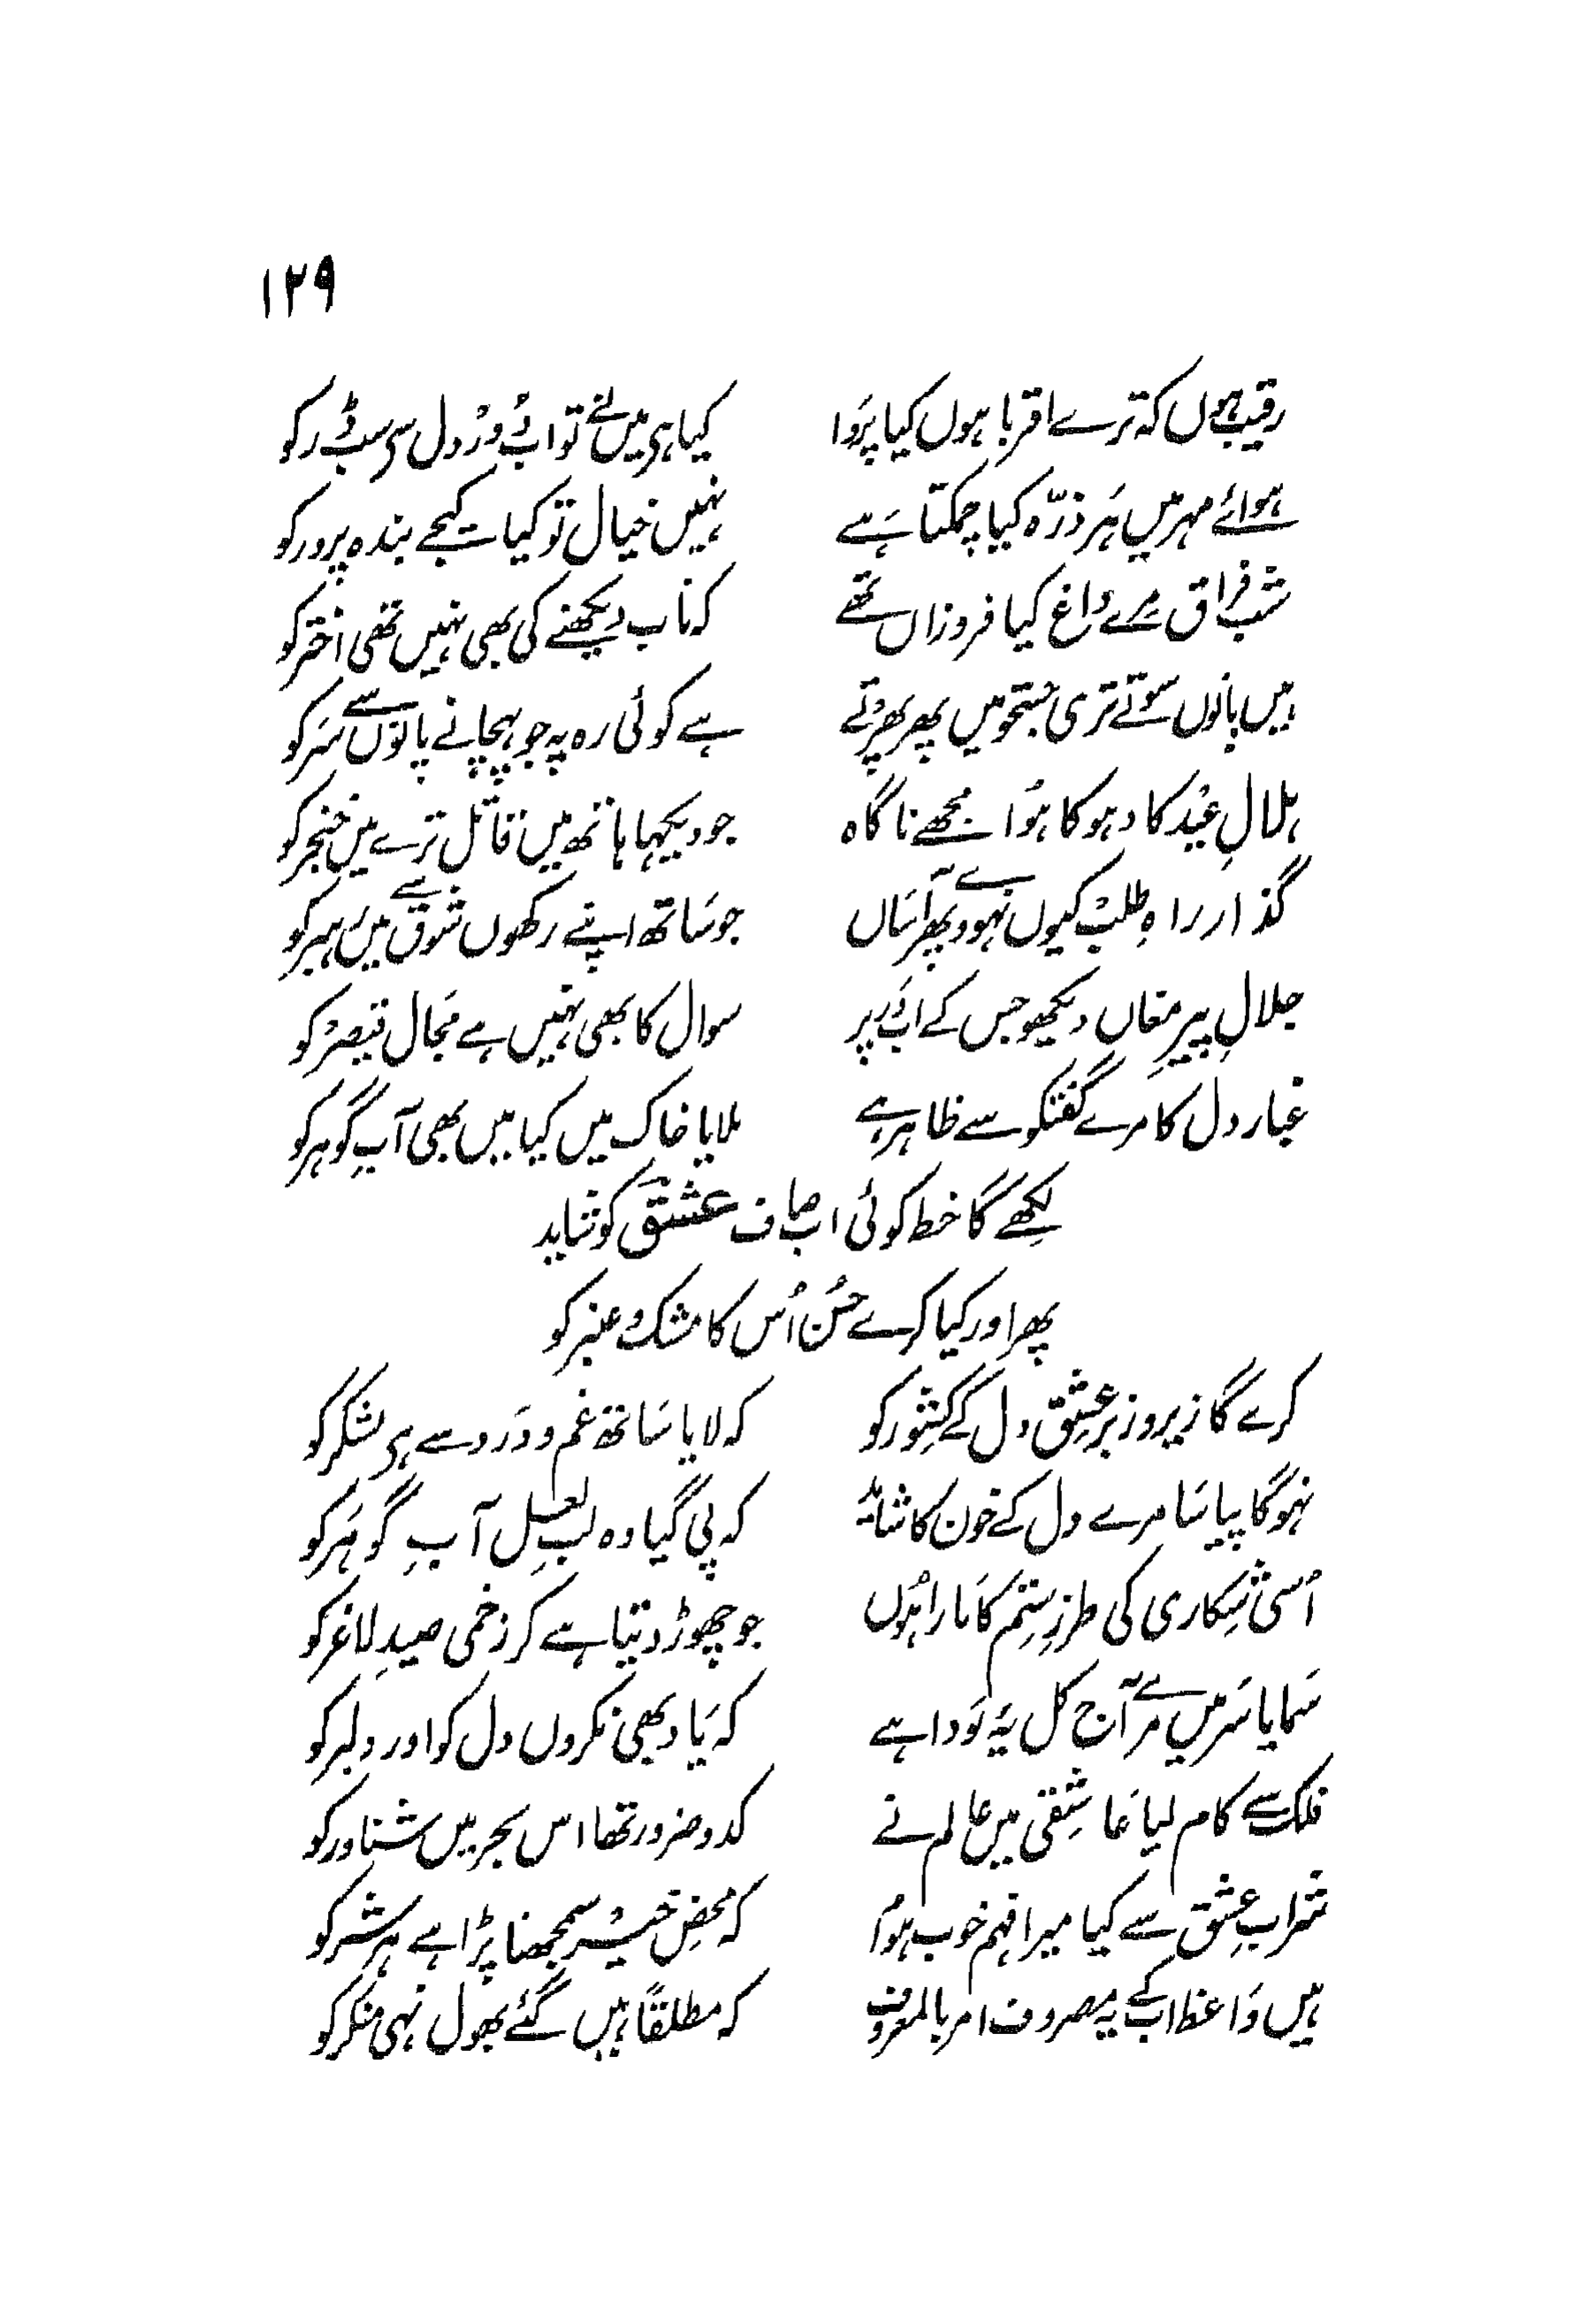 ۱۲۹
رقیب ہوں کہ ترے اقربا ہوں کیا پروا کیا ہی میں نے تو اب دُور دل سی سب ڈر کو
ہوائے مہر میں ہَر ذرّہ کیا چمکتا ہَے نہیں خیال تو کیا کیجے بندہ پرور کو
شب فراق مرے داغ کیا فروزاں تھے کہ تاب دیکھنے کی بھی نہیں تھی اختر کو
ہیں پانوں سُوتے تری جستجو میں پھر پھر تے ہے کوئی رہ پہ جو پہچانے پانوں سے سَر کو
ہلالِ عید کا دہوکا ہوُا مجھے ناگاہ جو دیکہا ہاتھ میں قاتل ترے میں خنجر کو
گذار راہِ طلب کیوں نہووے پھر آسَاں جو سَاتھ اپنے رکھوں شوق سے میں رہبر کو
جلالِ پیرِ مغاں دیکھو جس کے اب دَر پر سوال کا بھی نہیں ہے مَجال قیصرْ کو
غبار دل کا مرے گفتگو سے ظاہر ہے ملایا خاک میں کیا میں بھی آبِ گوہر کو
لکھے گا خط کوئی اب صاف عشقؔ کو شاید
پھر اور کیا کرے حسُن اُس کا مشک و عنبر کو
کرے گا زیر و زبر عشِق دل کے کِشور کو کہ لایا سَاتھ غم و دَرد سے ہی لشکر کو
نہوگا پیاسَا مرے دل کے خون کا شاید کہ پی گیا وہ لبِ لعل آبِ گوہَر کو
اُسی شِکاری کی طرزِ سِتم کا مَارا ہُوں جو چھوڑ دیتا ہے کر زخمی صیدِ لاغر کو
سَمایا سَر میں مرے آج کل یَہ سَودا ہے کہ یَاد بھی نکروں دل کو اور دلبر کو
فلک سے کام لیا عَاشِقی میں عالم نے کدو ضرور تھا اس بحر میں شناور کو
شرابِ عشِق سے کیا میرا فہم خوب ہوُا کہ محضِ خیر سمجھنا پڑا ہے ہر شر کو
ہیں وَاعظ اب کے یہ مصروف امر بالمعروف کہ مطلقاً ہیں گئے بھول نہی منکر کو